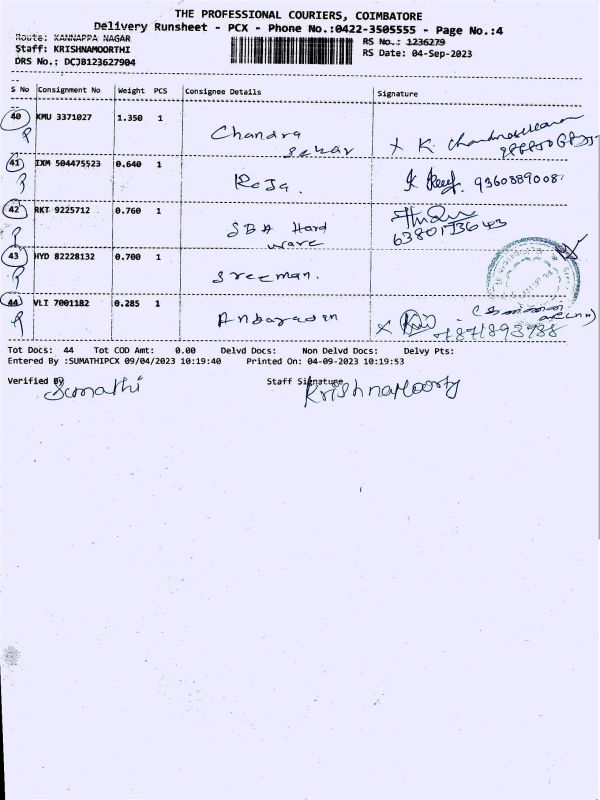 THE PROFESSIONAL COURIERS, COIMBATORE
Delivery Runsheet - PCX - Phone No.:0422-3505555 - Page No.:4
Route: KANNAPPA NAGAR
RS No.: 1236279
Staff: KRISHNAMOORTHI
RS Date: 04-Sep-2023
DRS No.: DCJB123627904
S No Consignment No Weight PCS Consignee Details Signature
40 KMU 3371027 1.350 1
Chandra
Sekar
X K. Chandrasekaran
41 IXM 504475523 0.640 1
Roja. 9360889008
42 RKT 9225712 0.760 1
SBA Hard
ware
43 HYD 82228132 0.700 1
Sreeman.
44 VLI 7001182 0.285 1
X 7871893788
Tot Docs: 44 Tot COD Amt: 0.00 Delvd Docs: Non Delvd Docs: Delvy Pts:
Entered By :SUMATHIPCX 09/04/2023 10:19:40 Printed On: 04-09-2023 10:19:53
Verified By Staff Signature
Sumathi Krishnamoorty